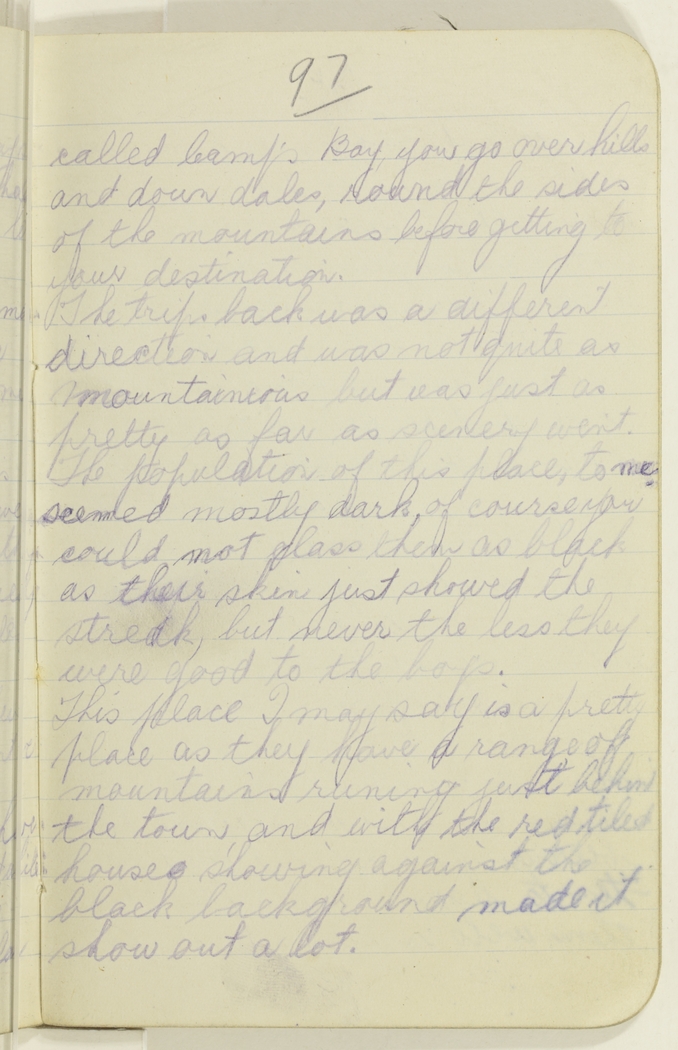 97
called Camp's Bay, you go over hills
and down dales, round the sides
of the mountains before getting to
your destination.
The trip back was a different
direction and was not quite as
mountainious but was just as
pretty as far as scenery went.
The population of this place, to me
seemed mostly dark, of course you
could not glass them as black
as their skin just showed the
streak, but never the less they
were good to the boys.
This place I may say is a pretty
place as they have a range of
mountains runing just behind
the town, and with the red tiled
houses showing against the
black background made it
show out a lot.